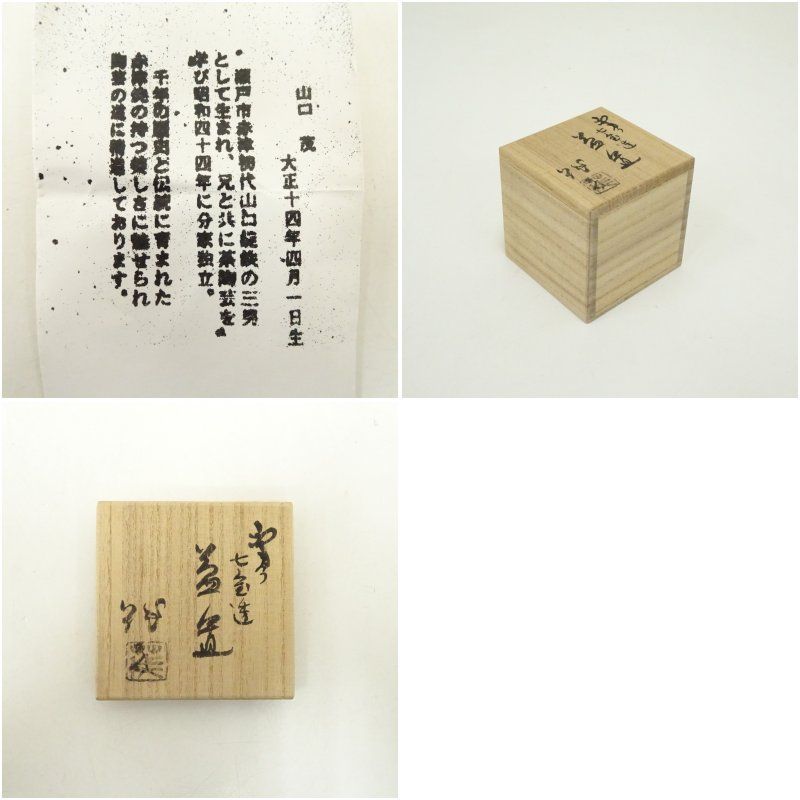 山口 茂
大正十四年四月一日生
瀬戸市赤津初代山口錠鉄の三男
として生まれ、兄と共に茶陶芸を
学び昭和四十四年に分家独立。
千年の歴史と伝統に育まれた
赤津焼の持つ美しさに魅せられ
陶芸の道に精進しております。
七宝透
蓋置
七宝透
蓋置